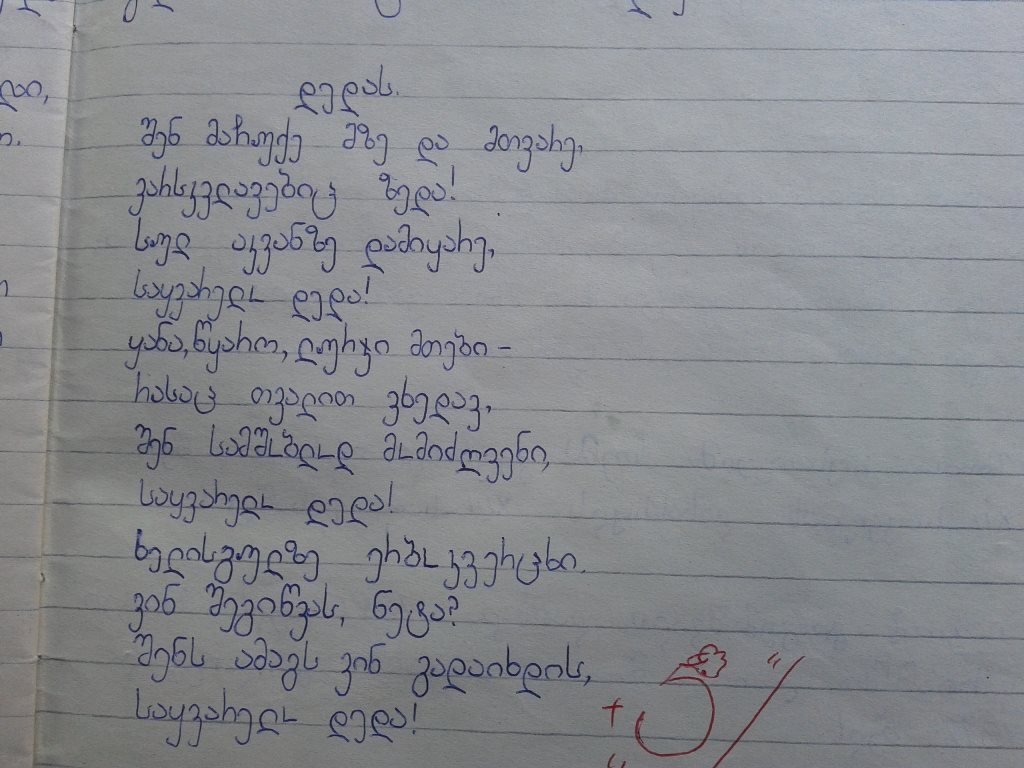 დედას.
შენ მაჩუქე მზე და მთვარე,
ვარსკვლავებიც ზედა!
სულ აკვანზე დამიყარე,
საყვარელო დედა!
ყანა, წყარო, ლურჯი მთები -
რასაც თვალით ვხედავ,
შენ სამშობლოდ მომიძღვენი,
საყვარელო დედა!
ხელისგულზე ერბოკვერცხი.
ვინ შეგიწვას, ნეტა?
შენს ამაგს ვინ გადაიხდის,
საყვარელო დედა!